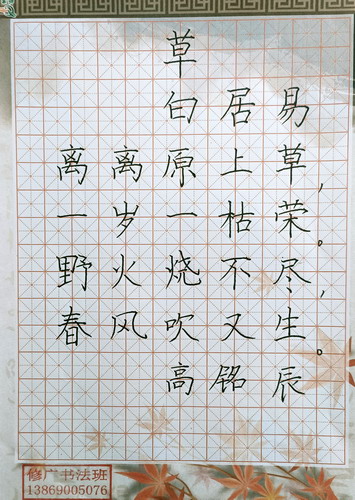 草
白居易
离离原上草，
一岁一枯荣。
野火烧不尽，
春风吹又生。
高铭辰
修广书法班
13869005076